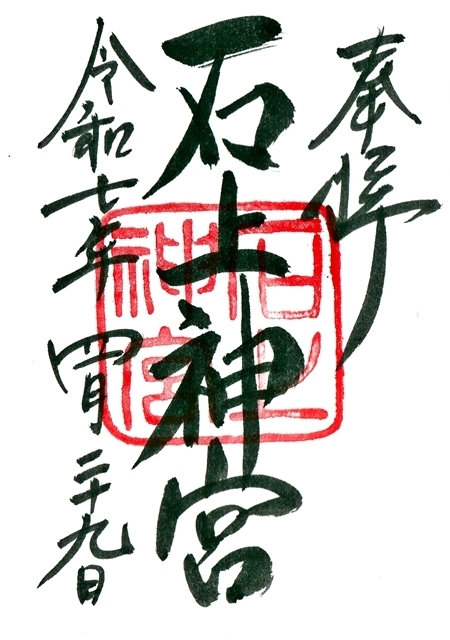 奉拝
石上神宮
石上神宮
令和七年四月二十九日